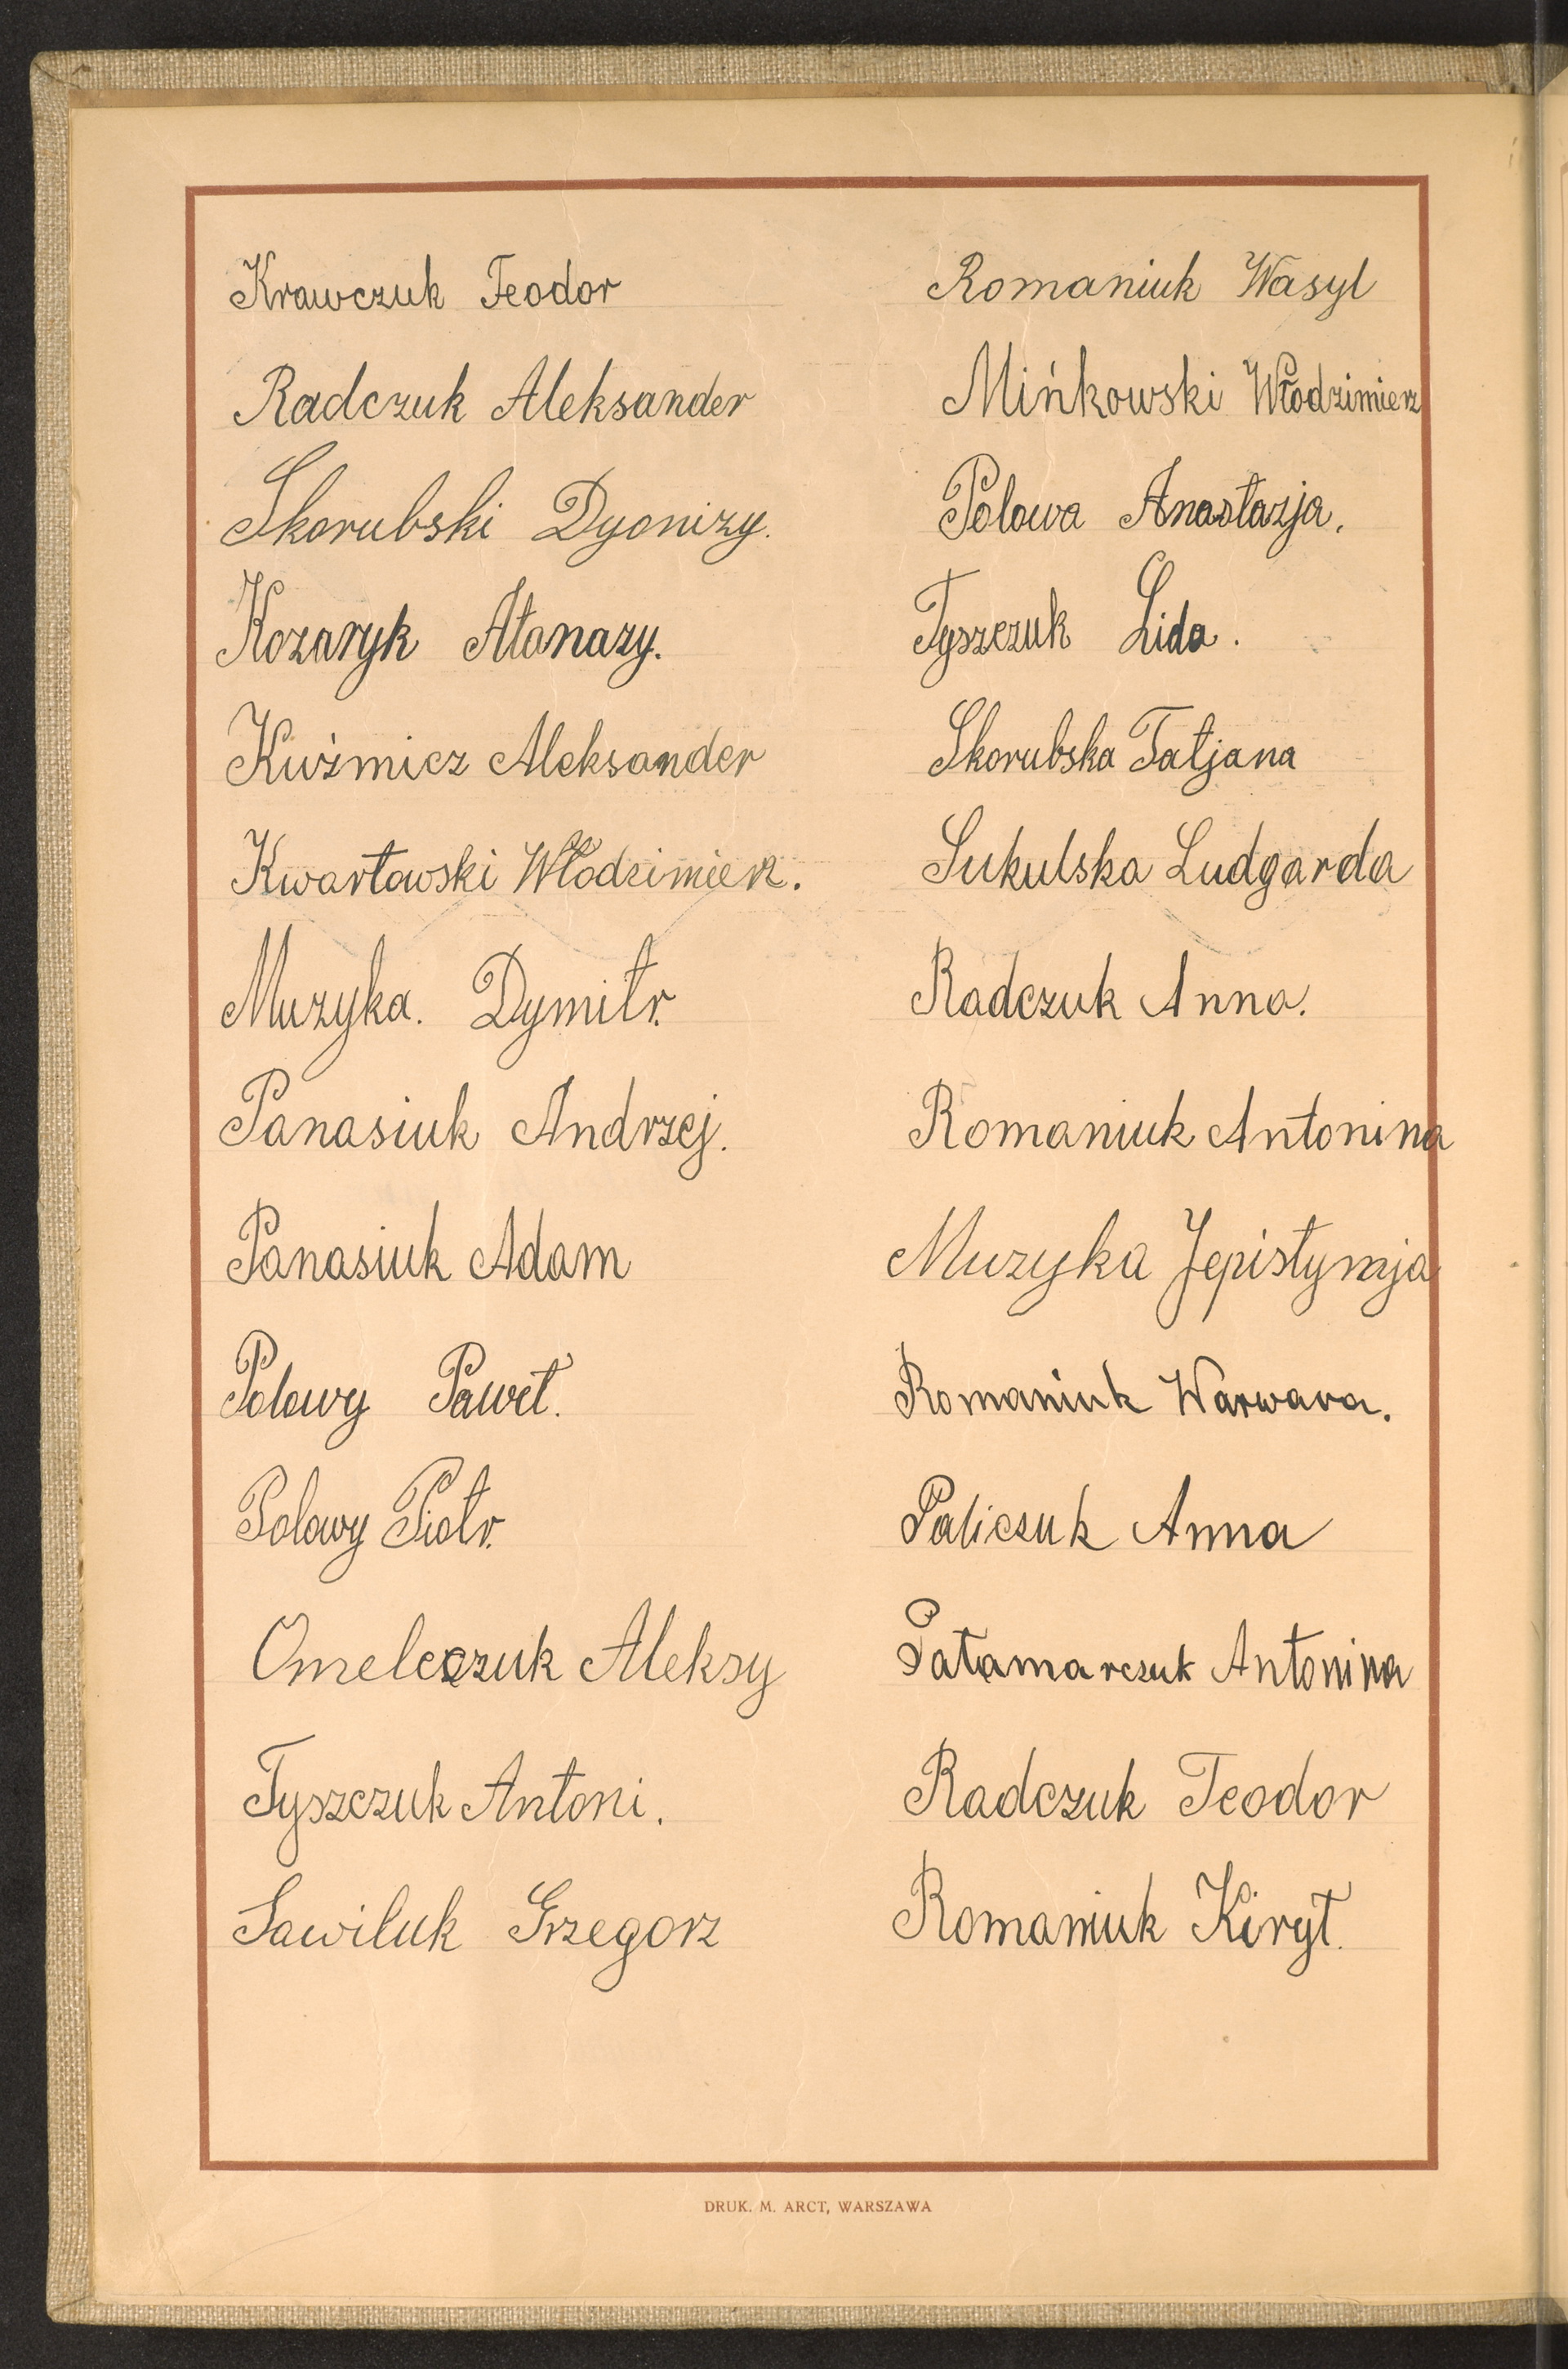 Krawczuk Teodor
Radczuk Aleksander
Skorubski Dyonizy.
Kozaryk Atanazy.
Kuźmicz Aleksander
Kwartowski Włodzimierz.
Muzyka. Dymitr.
Panasiuk Andrzej.
Panasiuk Adam
Polowy Paweł.
Polowy Piotr.
Omelczuk Aleksy
Tyszczuk Antoni.
Sawiluk Grzegorz
Romaniuk Wasyl
Mińkowski Włodzimierz
Polowa Anastazja.
Tyszczuk Lida.
Skorubska Tatjana
Sukulska Ludgarda
Radczuk Anna.
Romaniuk Antonina
Muzyka Jepistymja
Romaniuk Warwara.
Paliczuk Anna
Pałamarczuk Antonina
Radczuk Teodor
Romaniuk Kirył.
DRUK. M. ARCT, WARSZAWA